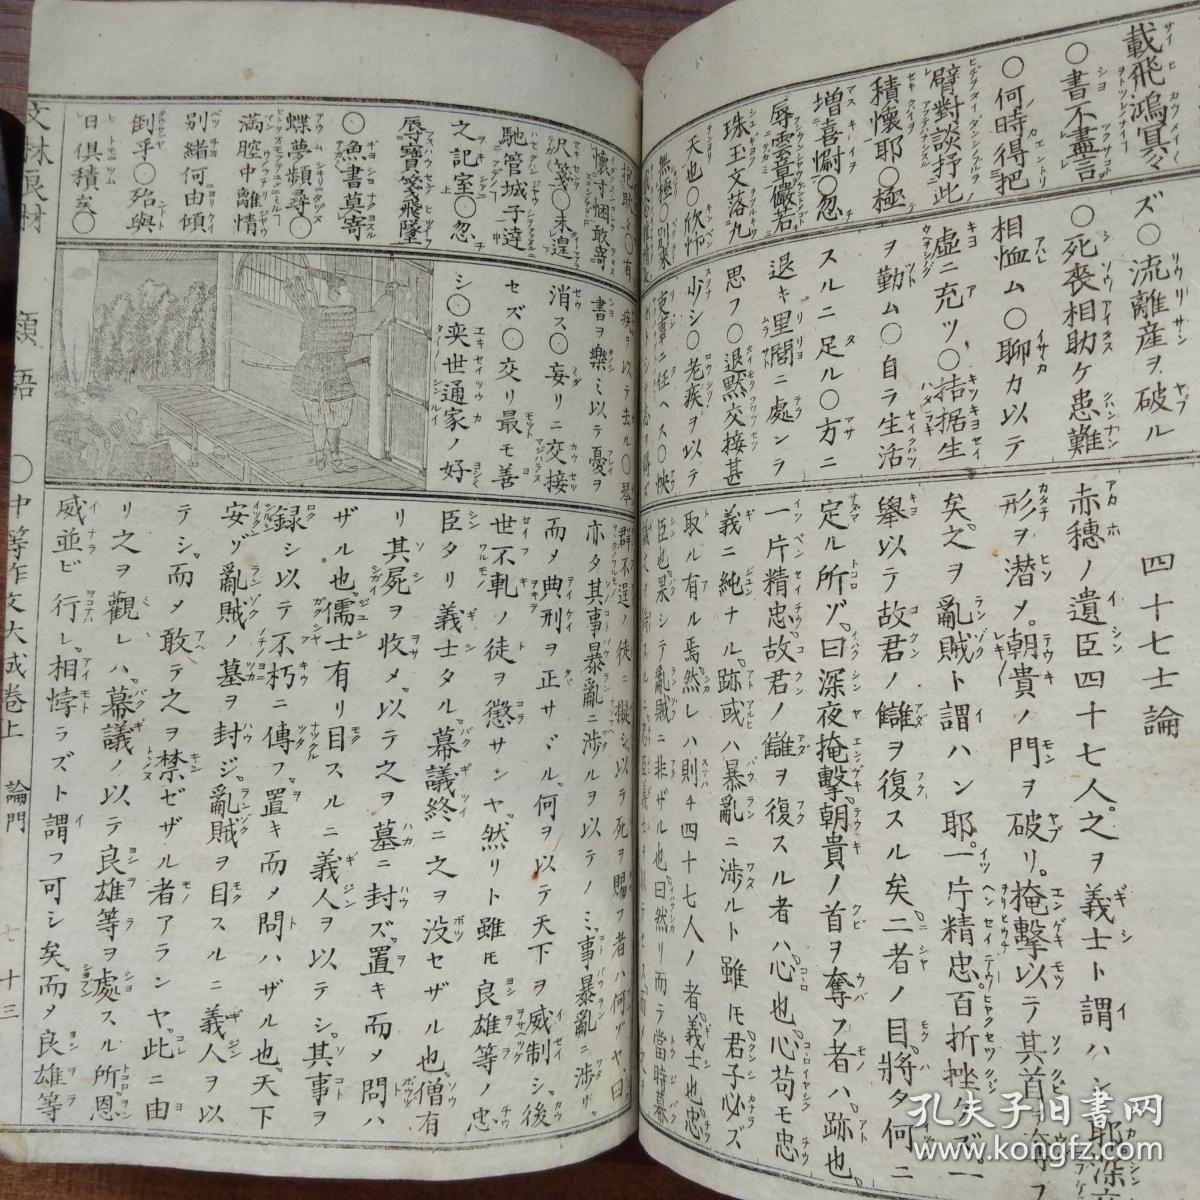 載飛鴻冥々
○書不盡言
○何時得把
臂對談抒此
積懷耶○極
増喜慰○忽
辱雲章儼若
珠玉文落九
天也○欣怖
ズ○流離産ヲ破ル
○死喪相助ケ患難
相恤ム○聊カ以テ
虚ニ充ツ○拮据生
ヲ勤ム○自ラ生活
スルニ足ル○方ニ
退キ里閭ニ處ンラ
思フ○退黙交接甚
少シ○老疾ヲ以テ
吏事ニ任ヘス○怏
四十七士論
赤穗ノ遺臣四十七人。之ヲ義士ト謂ハン耶
形ヲ潜メ。朝貴ノ門ヲ破リ。掩撃以テ其首ヲ奪フ
矣。之ヲ亂賊ト謂ハン耶。一片精忠。百折挫ケズ。一
舉以テ故君ノ讎ヲ復スル矣。二者ノ目將タ何ニ
定ル所ゾ。曰深夜掩撃。朝貴ノ首ヲ奪フ者ハ。跡也。
一片精忠。故君ノ讎ヲ復スル者ハ。心也。心苟モ忠
義ニ純ナル。跡或ハ暴亂ニ渉ルト雖モ。君子必ズ
取ル有ル焉。然レハ則チ四十七人ノ者。義士也。忠
臣也。果シテ亂賊ニ非ザル也。曰然リ而テ當時幕
懷寸悃敢寄
尺箋○未遑
馳管城子達
之記室○忽
辱寶箋飛墜
○魚書莫寄
蝶夢頻尋○
滿腔中離情
別緒何由傾
倒乎○殆與
日俱積矣○
疾ヲ以テ去ル○琴
書ヲ樂ミ以テ憂ヲ
消ス○妄リニ交接
セズ○交リ最モ善
シ○奕世通家ノ好
群不逞ノ徒ニ擬シ。以ラ死ヲ賜フ者ハ何ゾヤ。曰。
亦タ其事暴亂ニ渉ルヲ以テノミ。事暴亂ニ渉リ。
而メ典刑ヲ正サヾル。何ヲ以テ天下ヲ威制シ。後
世不軌ノ徒ヲ懲サンヤ。然リト雖モ良雄等ノ忠
臣タリ義士タル。幕議終ニ之ヲ没セザル也。僧有
リ其屍ヲ收メ。以テ之ヲ墓ニ封ズ。置キ而メ問ハ
ザル也。儒士有リ目スルニ義人ヲ以テシ。其事ヲ
録シ以テ不朽ニ傳フ。置キ而メ問ハザル也。天下
安ゾ亂賊ノ墓ヲ封ジ。亂賊ヲ目スルニ義人ヲ以
テシ。而メ敢テ之ヲ禁ゼザル者アランヤ。此ニ由
リ之ヲ觀レハ。幕議ノ以テ良雄等ヲ處スル所。恩
威並ビ行レ。相悖ラズト謂フ可シ矣。而メ良雄等
文林良材 類語 ○中等作文大成卷上 論門 七十三
孔夫子旧书网
www.kongfz.com